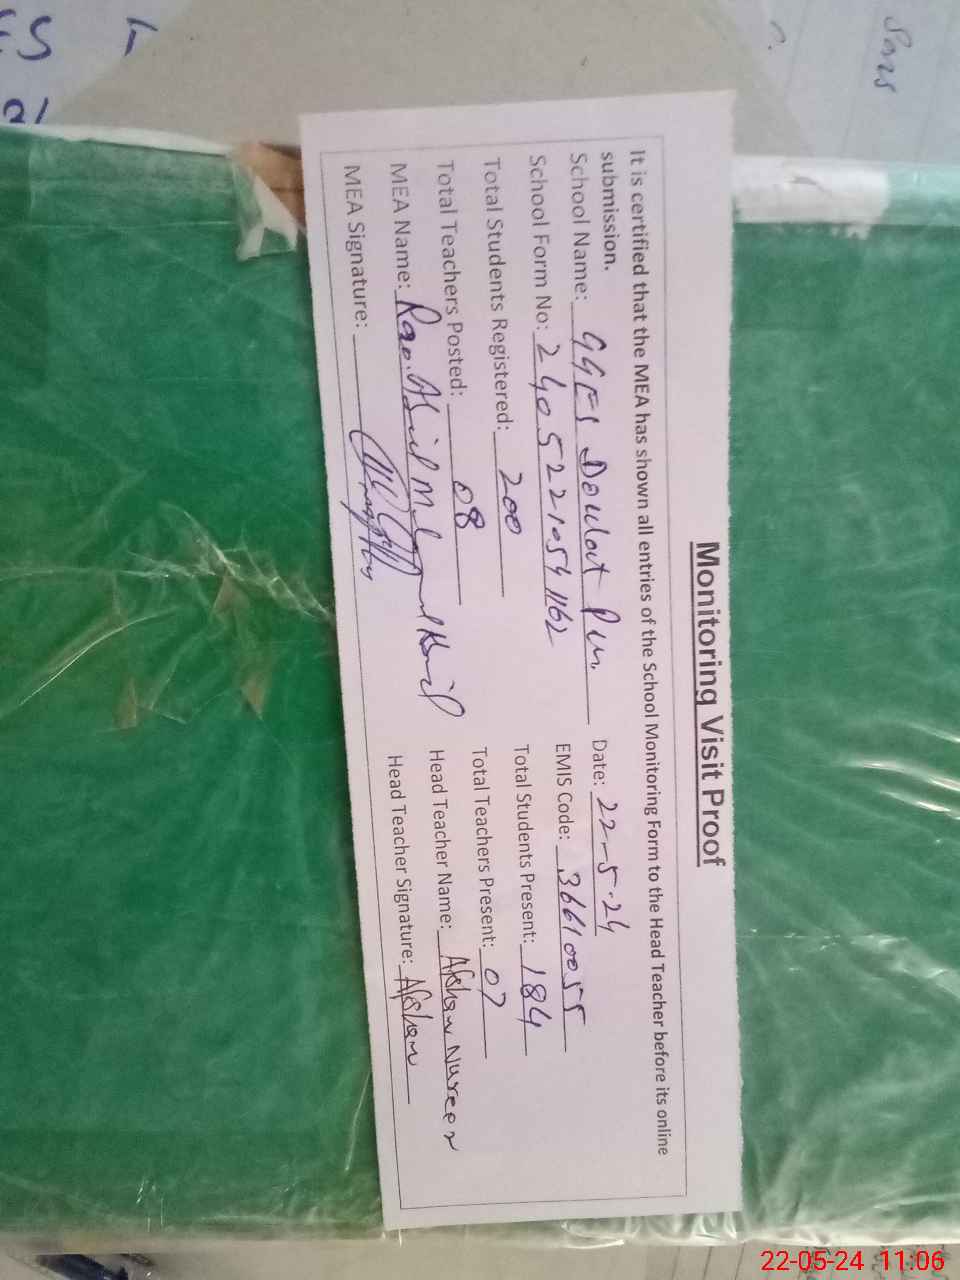 Monitoring Visit Proof
It is certified that the MEA has shown all entries of the School Monitoring Form to the Head Teacher before its online
submission.
School Name: GGES Doulat Pur Date: 22-5-24
School Form No: 24052210541162 EMIS Code: 36610055
Total Students Registered: 200 Total Students Present: 184
Total Teachers Posted: 08 Total Teachers Present: 07
MEA Name: Rao. Head Teacher Name: Afshan Nureen
MEA Signature: Head Teacher Signature: Afshan
22-05-24 11:06